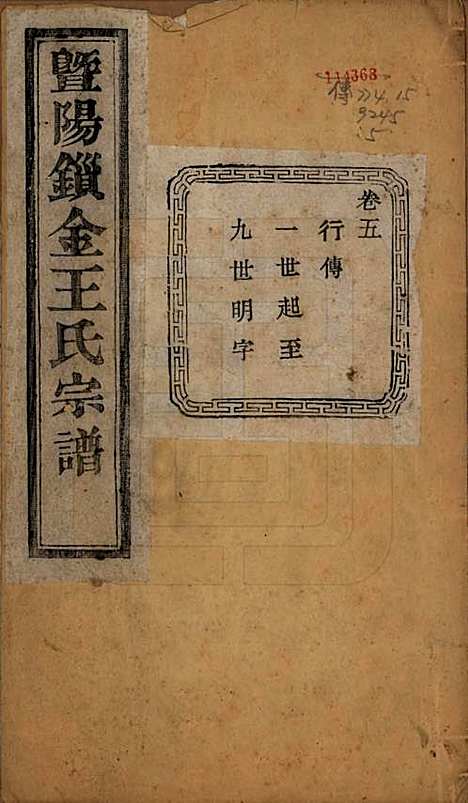 暨陽鎻金王氏宗譜
卷五
行傳
一世起至
九世明字
114363
傳
774.15
9245
:5